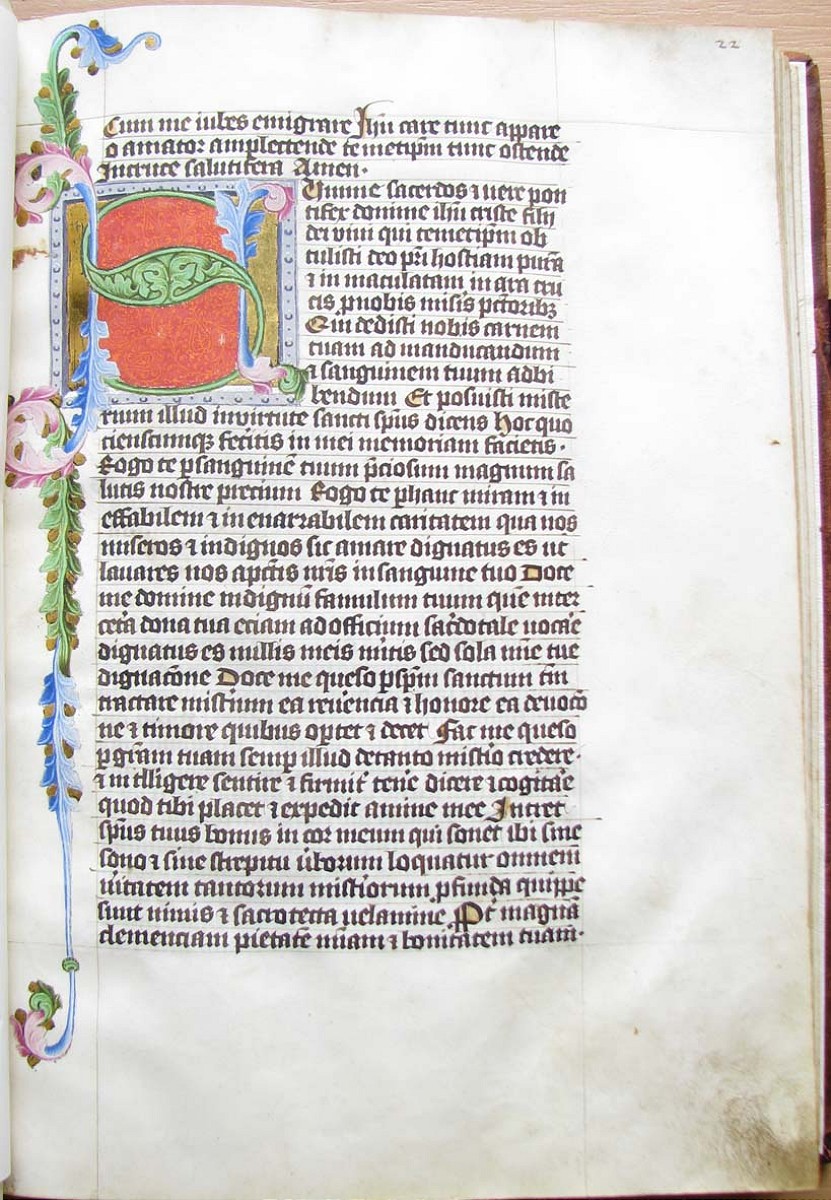 22
Cum me iubes emigrare Jhu care tunc appare
o amator amplectende temetipm tunc ostende
Incruce salutifera Amen·
Summe sacerdos ⁊ uere pon
tifex domine ihu criste fili
dei vivi qui temetipm ob
tulisti deo pri hostiam purā
⁊ in maculatam in ara cru
cis pnobis misis pctoribꝫ
Qui dedisti nobis carnem
tuam ad manducandum
⁊ sanguinem tuum adbi
bendum Et posuisti miste
rium illud invirtute sancti spūs dicens Hec quo
ciensumqꝫ fecitis in mei memoriam facietis·
Rogo te psanguinē tuum p̄ciosum magnum sa
lutis nostre precium Rogo te phanc miram ⁊ in
effabilem ⁊ in enarrabilem caritatem qua nos
miseros ⁊ indignos sic amare dignatus es ut
lavares nos apctis nr̄is insanguine tuo Doce
me domine indignū famulum tuum quē inter
cetā dona tua eciam ad officium sac̄dotale uocāe
dignatus es nullis meis mitis sed sola mīe tue
digna͞cone Doce me queso pspm sanctum tm
tractare mistium ea reu̅encia ⁊ honore ea deuocō
ne ⁊ timore quibus optet ⁊ decet Fac me queso
p gram tuam semp illud detanto mistio credere·
⁊ in tlligere sentire ⁊ firmit̄ tenē dicere ⁊ cogitāe
quod tibi placet ⁊ expedit anime mee Intret
spūs tuus bonus in cor meum qui sonet ibi sine
sono ⁊ sine strepitu ūborum loquatur omnem
ūitatem tantorum mistiorum pfunda quippe
sunt nimis ⁊ sacro tecta uelamine Pt̄ magnā
clemenciam pietatē mīam ⁊ bonitatem tuam·